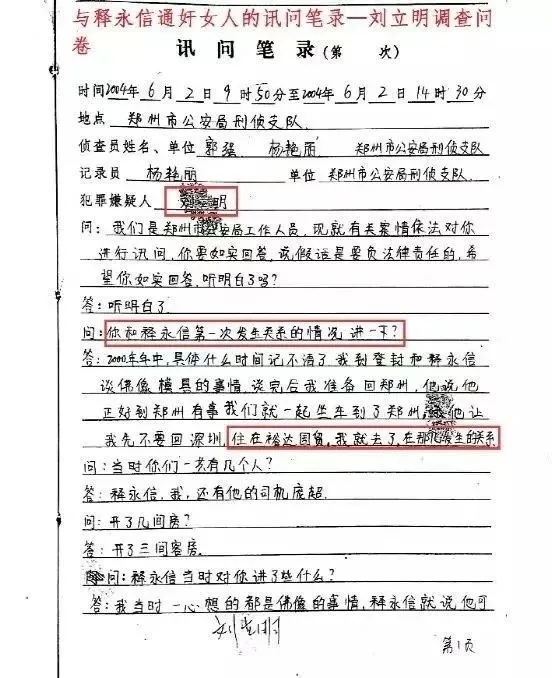 与释永信通奸女人的讯问笔录—刘立明调查问
卷
讯问笔录(第 次)
时间2004年6月2日9时50分至2004年6月2日14时30分
地点 郑州市公安局刑侦支队
侦查员姓名、单位 郭强 杨艳丽 郑州市公安局刑侦支队
记录员 杨艳丽 单位 郑州市公安局刑侦支队
犯罪嫌疑人 明
问:我们是郑州市公安局工作人员,现就有关案情依法对你
进行讯问,你要如实回答,说假话是要负法律责任的,希
望你如实回答,听明白了吗?
答:听明白了
问:你和释永信第一次发生关系的情况讲一下?
答:2000年年中,具体什么时间记不清了,我到登封和释永信
谈佛像模具的事情,谈完后我准备回郑州,他说他
正好到郑州有事我们就一起坐车到了郑州,他让
我先不要回深圳,住在裕达国贸,我就去了,在那儿发生的关系
问:当时你们一共有几个人?
答:释永信,我,还有他的司机庞超.
问:开了几间房?
答:开了三间客房.
问:释永信当时对你讲了些什么?
答:我当时一心想的都是佛像的事情,释永信就说他可
第1页